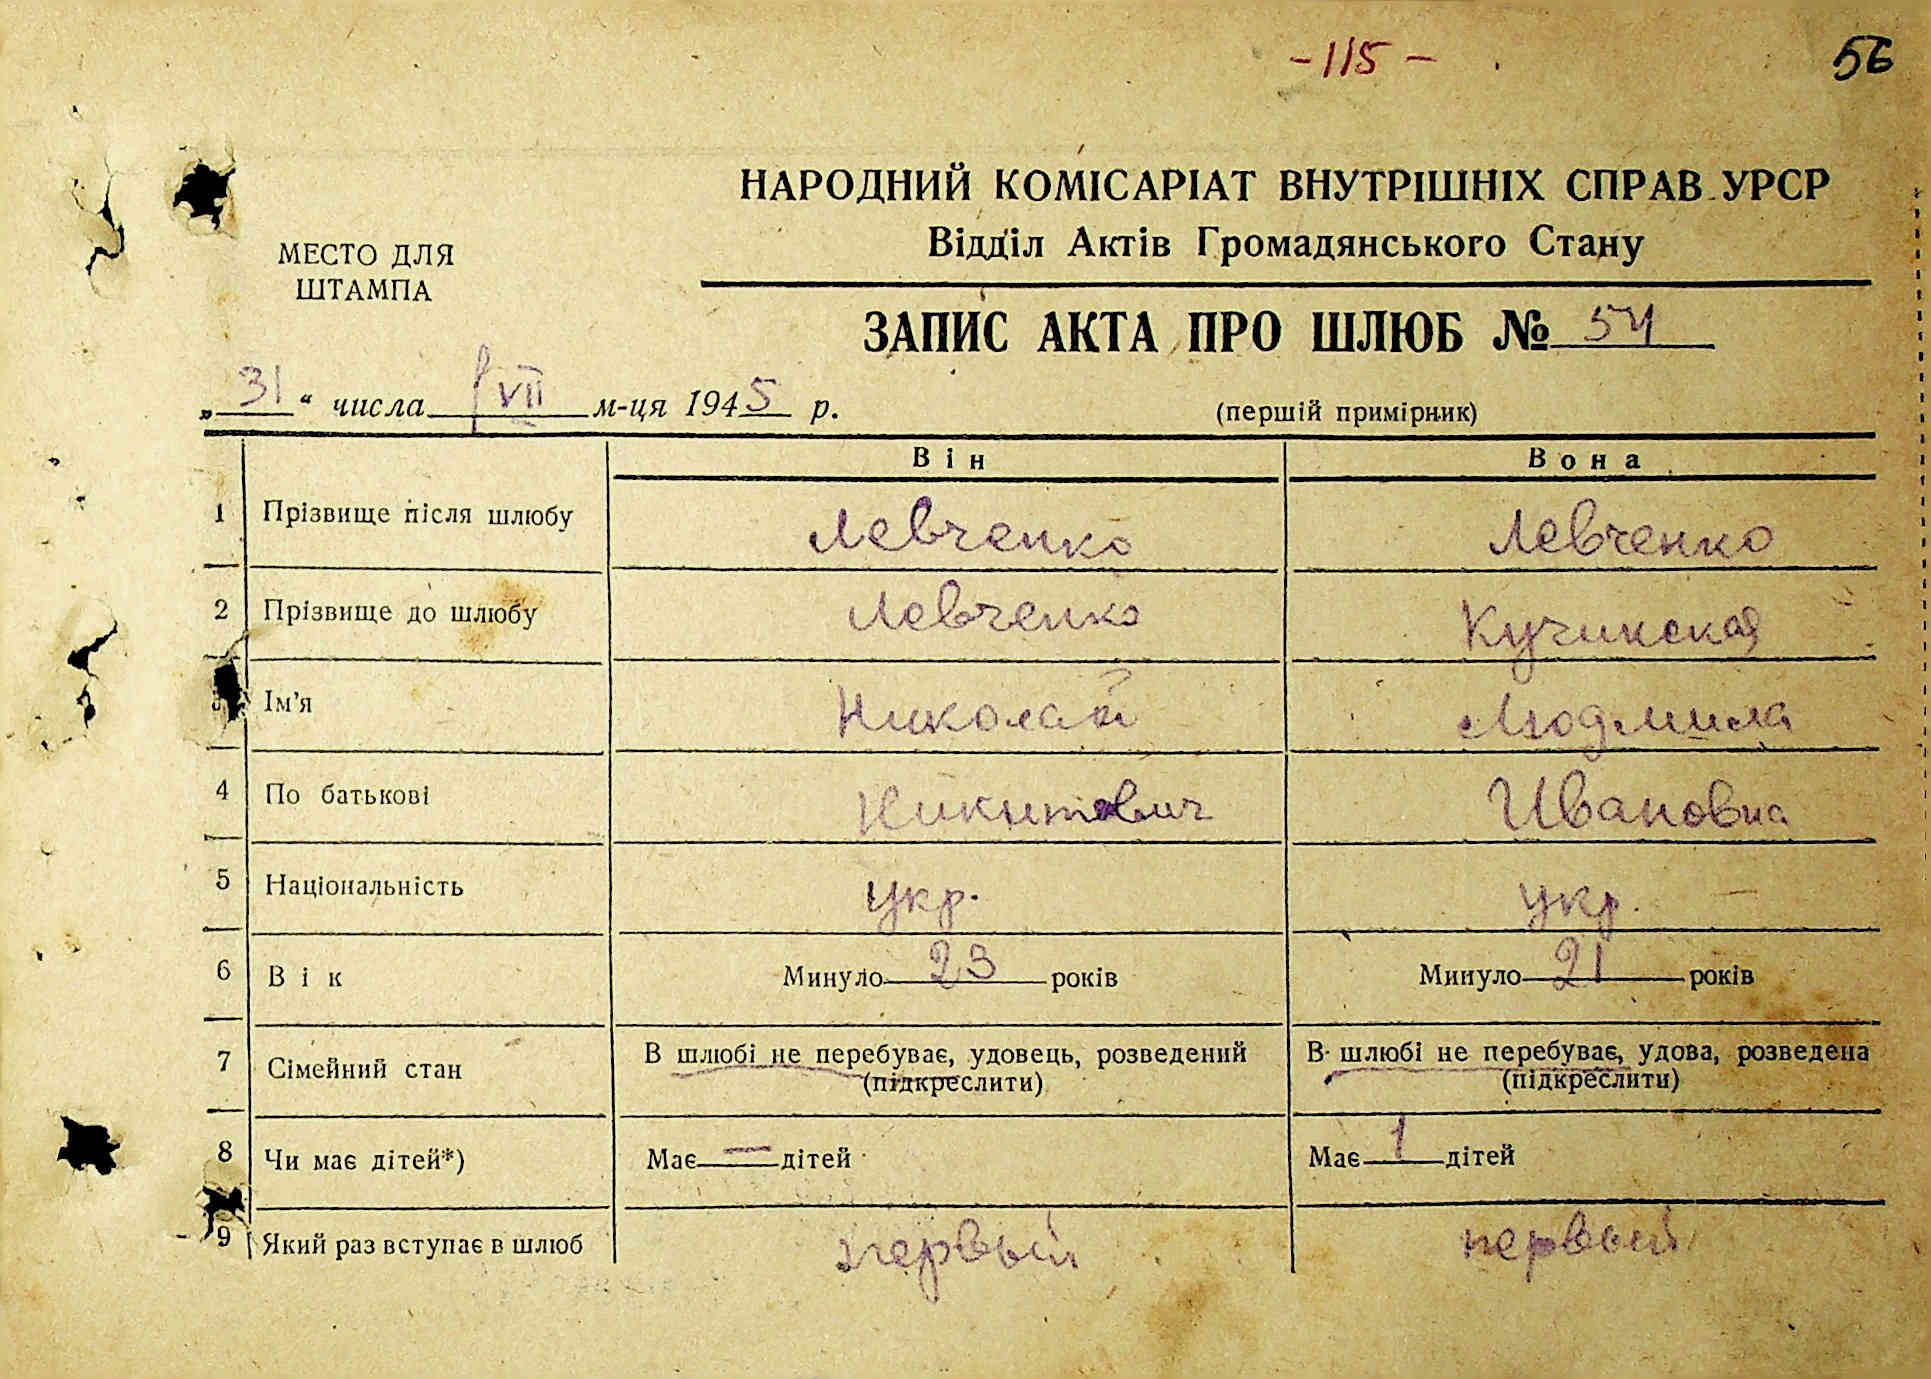 -115-
56
НАРОДНИЙ КОМІСАРІАТ ВНУТРІШНІХ СПРАВ УРСР
Відділ Актів Громадянського Стану
МЕСТО ДЛЯ
ШТАМПА
ЗАПИС АКТА ПРО ШЛЮБ № 54
„31“ числа VII м-ця 1945 р.
(першій примірник)
Він Вона
1 Прізвище після шлюбу Левченко Левченко
2 Прізвище до шлюбу Левченко Кучинская
3 Ім'я Николай Людмила
4 По батькові Никитович Ивановна
5 Національність укр. укр.
6 Вік Минуло 23 років Минуло 21 років
7 Сімейний стан В шлюбі не перебуває, удовець, розведений В шлюбі не перебуває, удова, розведена
(підкреслити) (підкреслити)
8 Чи має дітей*) Має — дітей Має 1 дітей
9 Який раз вступає в шлюб первый первый